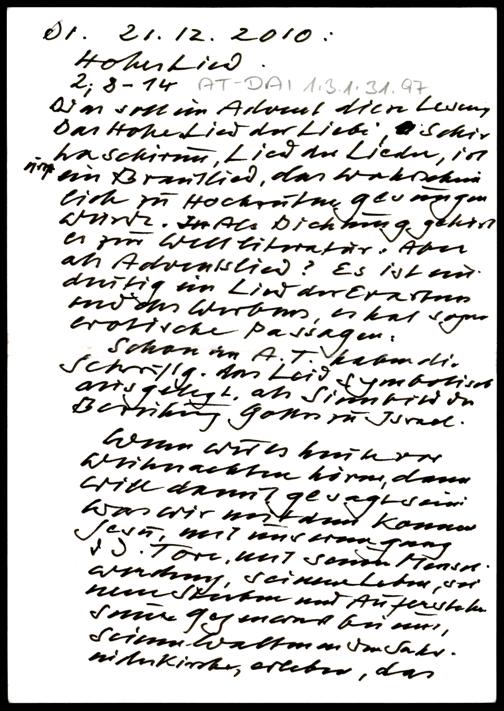 Di. 21.12.2010:
Hohes Lied
2, 8-14 AT-DAI 1.3.1.31.97
Was soll im Advent diese Lesung
Das Hohe Lied der Liebe, Schir
ha schirim, Lied der Lieder, ist
ein Brautlied, das wahrschein
lich zu Hochzeiten gesungen
wurde. Als Dichtung gehört
es zur Weltliteratur. Aber
als Adventslied? Es ist ein
deutig ein Lied der Erwartung
und des Werbens, es hat sogar
erotische Passagen.
Schon im A.T. haben die
Schriftg. das Lied symbolisch
ausgelegt, als Sinnbild der
Beziehung Gottes zu Israel.
Wenn wir es heute vor
Weihnachten hören, dann
will damit gesagt sein
was wir mit dem Kommen
Jesu, mit uns
33. Tore, mit seiner Mensch
werdung, seinem Leben, sei
nem Sterben und Auferstehen
seine Gegenwart bei uns,
seinem Walten in den Sakr.
in der Kirche, erleben, das